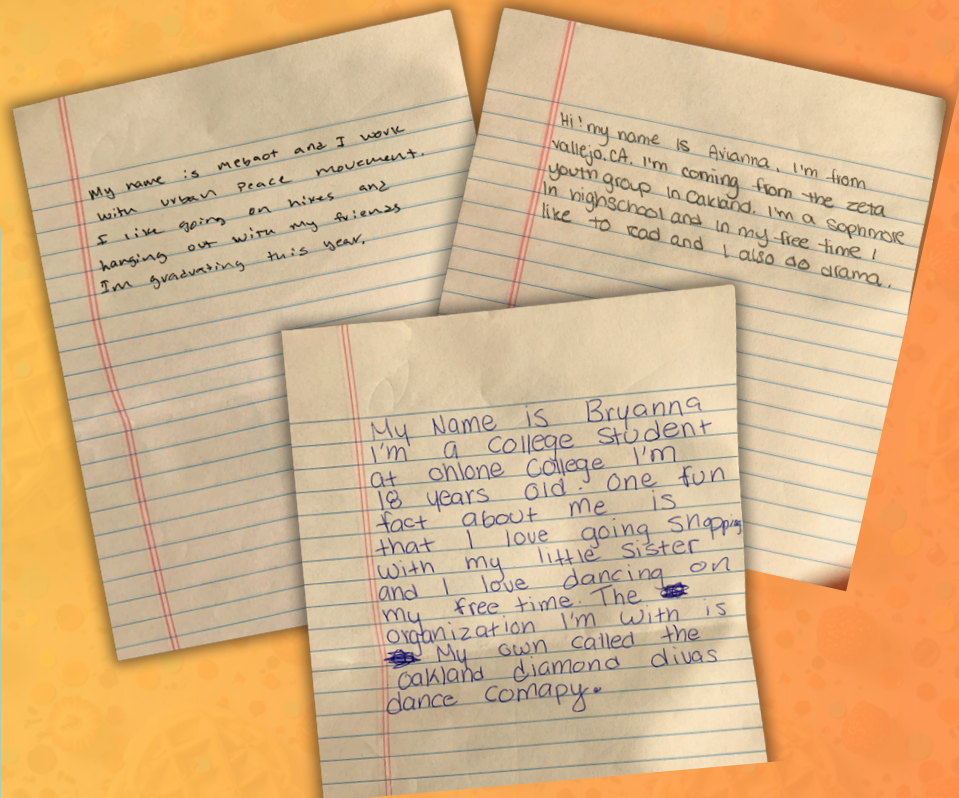 My name is mebaot and I work
with urban Peace movement.
I like going on hikes and
hanging out with my friends
Im graduating this year.
Hi! my name is Avianna, I'm from
vallejo, CA. I'm coming from the zeta
youth group in Oakland. I'm a sophmore
in highschool and in my free time I
like to read and I also do drama.
My Name is Bryanna
I'm a college student
at ohlone College I'm
18 years old. one fun
fact about me is
that I love going shopping
with my little sister
and I love dancing on
my free time. The
organization I'm with is
My own called the
oakland diamond divas
dance comapy.